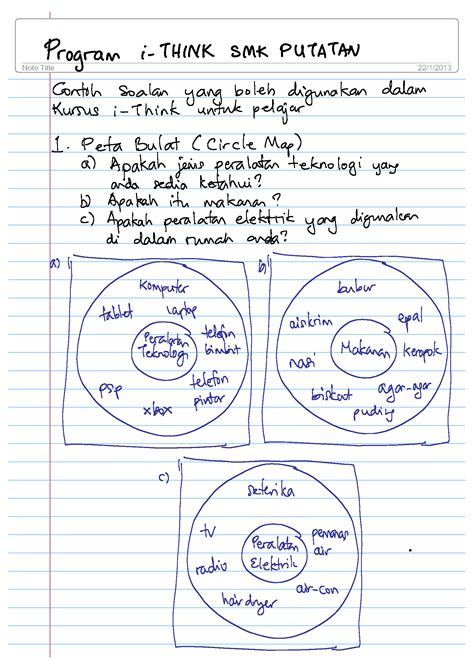 Program i-THINK SMK PUTATAN
Note Title
22/1/2013
Contoh Soalan yang boleh digunakan dalam
Kursus i-Think untuk pelajar
1. Peta Bulat (Circle Map)
a) Apakah jenis peralatan teknologi yang
anda sedia ketahui?
b) Apakah itu makanan?
c) Apakah peralatan elektrik yang digunakan
di dalam rumah anda?
a)
komputer
tablet
laptop
telefon
bimbit
Peralatan
Teknologi
telefon
pintar
psp
xbox
b)
bubur
aiskrim
epal
Makanan
keropok
nasi
biskut
agar-agar
puding
c)
seterika
tv
pemanas
air
Peralatan
Elektrik
radio
air-con
hair dryer